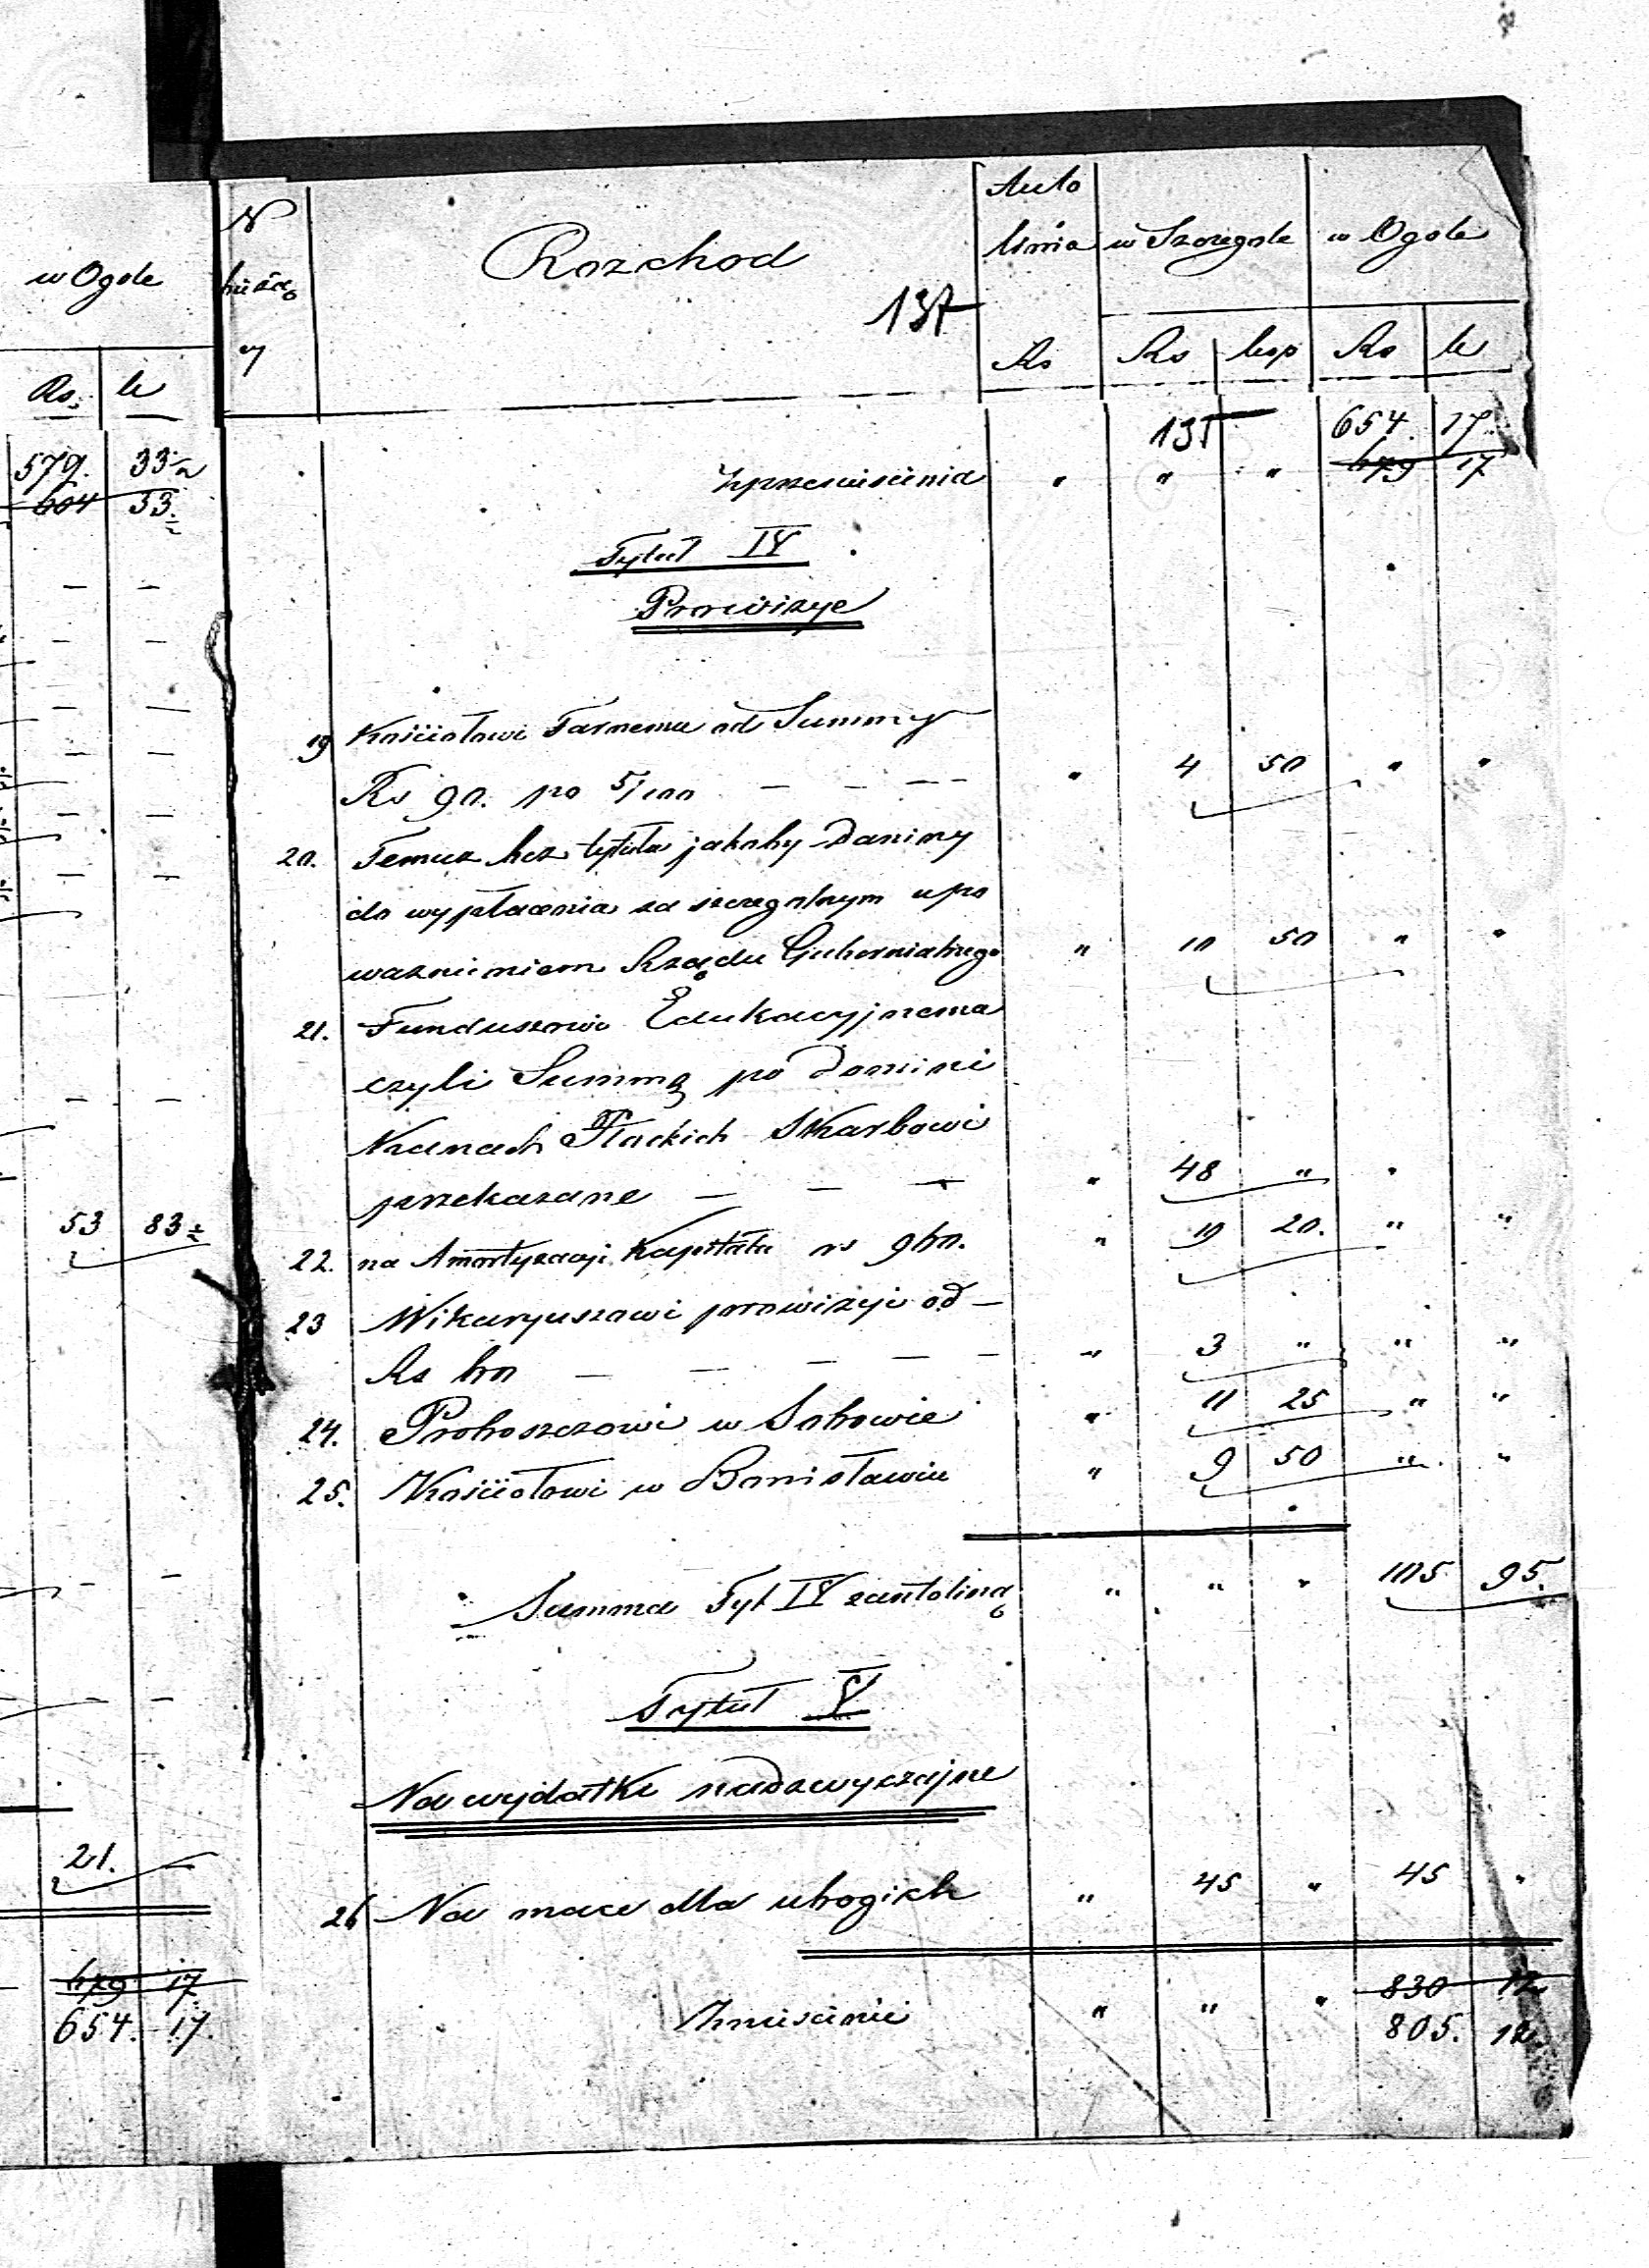 w Ogole
Rs. k
579. 33 ½
604 33 ½
— —
— —
— —
— —
— —
— —
— —
53 83 ½
— —
— —
21. —
679 17
654. 17.
N
bieżący
Rozchod
137
Anto
linia
w Szczegole
w Ogole
Rs Rs kop Rs k
135
654. 17
z przeniesienia " " " 679 17
Tytuł IV
Prowizye
19 Kościołowi Farnemu od Summy
Rs 90. po 5/100 — — — " 4 50 " "
20. Temuz bez tytułu jakoby Daniny
do wypłacenia za szczegolnym upo
waznieniem Rządu Gubernialnego " 10 50 " "
21. Funduszowi Edukacyjnemu
czyli Summą po Domini
Kanach Płockich Skarbowi
przekazane — — — " 48 " "
22. na Amortyzacyi Kapitału rs 960. " 19 20. " "
23 Wikaryuszowi prowizyi od —
Rs 60 — — — — — " 3 " " "
24. Proboszczowi w " 11 25 " "
25. Kościołowi w Bonisławiu " 9 50 " "
Summa Tyt IV " " " 105 95.
Tytuł V
Na wydatki nadzwyczajne
26 Na mace dla ubogich " 45 " 45 "
830 12
Zniesienie " " " 805. 12